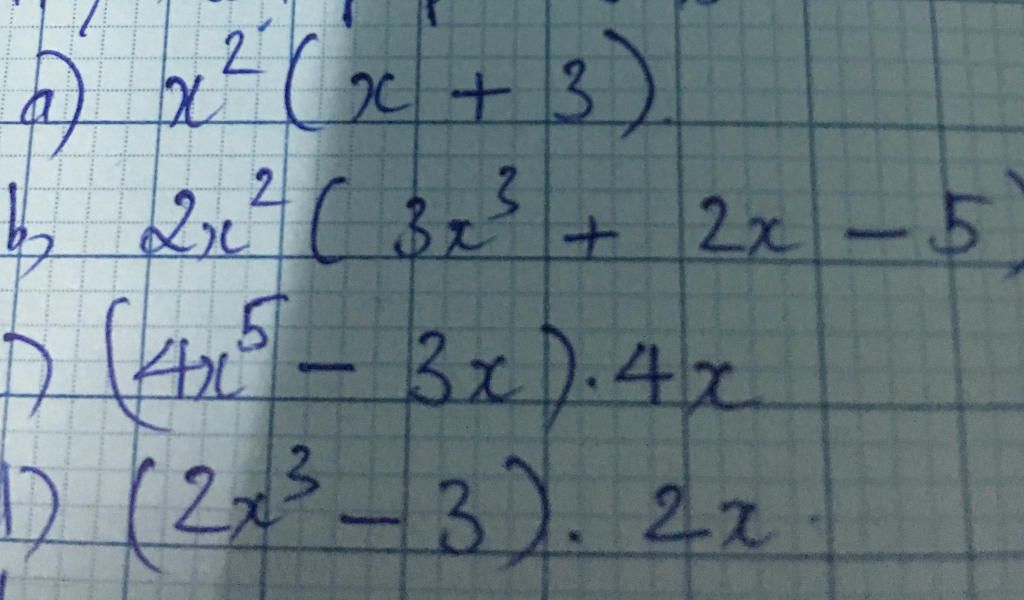 a) x² ( x + 3 ).
b, 2x² ( 3x³ + 2x - 5 )
) (4x⁵ - 3x ) . 4x
d) (2x³ - 3 ) . 2x